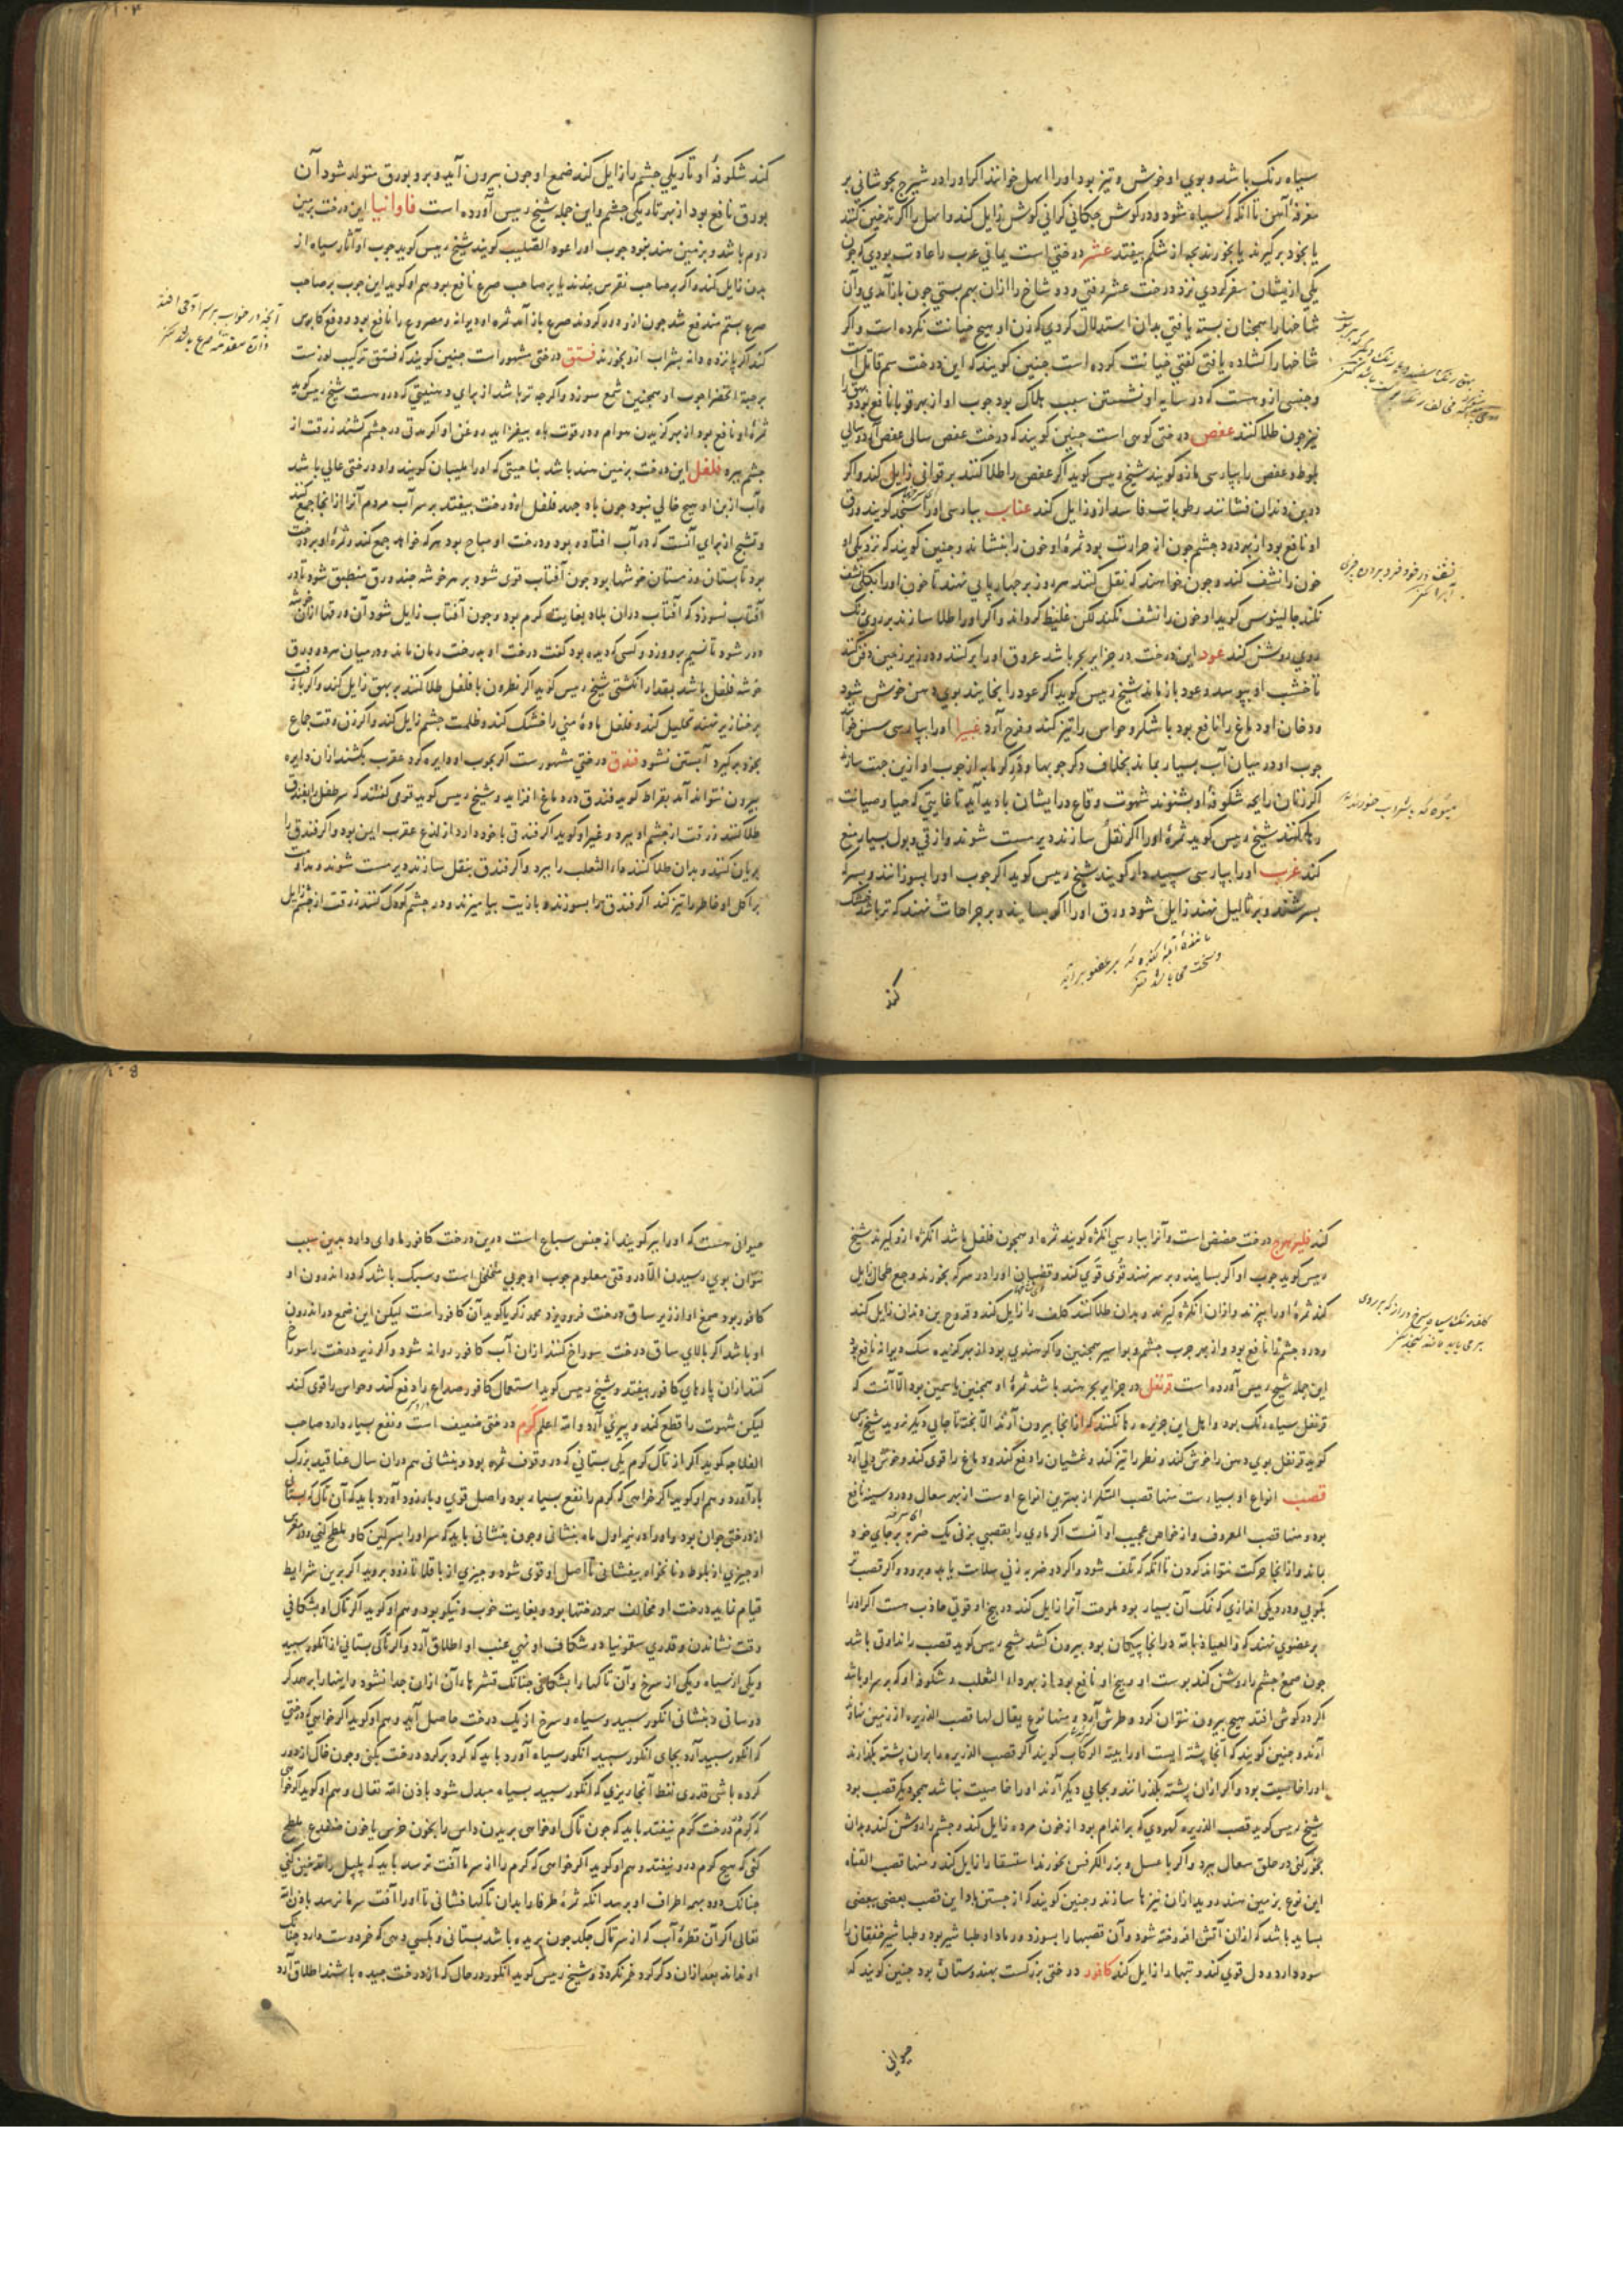 سیاه رنک باشد و بوی او خوش و تیز بود او را ابهل خوانند اکر او را در شیرج بجوشانی بر
مغرفهٔ آهن تا آنکه که سیاه شود و در کوش چکانی کرانی کوش زایل کند و ابهل را اکر تدخین کنند
یا بخود برکیرند یا بخورند بچه از شکم بیفتد عشر درختی است یمانی عرب را عادت بودی که چون
یکی از یشان سفر کردی نزد درخت عشر رفتی و دو شاخ را ازان بهم بستی چون باز آمدی و آن
شاخها را همچنان بسته یافتی بدان استدلال کردی که زن او هیچ خیانت نکرده است و اکر
شاخها را کشاده یافتی کفتی خیانت کرده است چنین کویند که این درخت سم قاتل است
و جنسی ازو هست که در سایه او نشستن سبب هلاک بود چوب او از بهر قوبا نافع بود و بهق را
نیز چون طلا کنند عفص درختی کوهی است چنین کویند که درخت عفص سالی عفص آرد و سالی
بلوط و عفص را بپارسی مازو کویند شیخ رییس کوید اکر عفص را طلا کنند بر قوبا زایل کند و اکر
در بن دندان فشانند رطوبات فاسد ازو زایل کند عناب بپارسی او را سنجد کویند ورق
او نافع بود از بهر درد چشم چون از حرارت بود ثمرهٔ او خون را بنشاند و چنین کویند که نزدیکی او
خون را نشف کند و چون خواهند که نقل کنند هر روز بر چهارپایی نهند تا خون او را بکلی نشف
نکند جالینوس کوید او خون را نشف نکند لکن غلیظ کرداند و اکر او را طلا سازند بر روی رنک
روی روشن کند عود این درخت در جزایر بحر باشد عروق او را برکنند و در زیر زمین دفن کنند
تا خشب او بپوسد و عود باز ماند شیخ رییس کوید اکر عود را بخایند بوی دهن خوش شود
و دخان او دماغ را نافع بود باشکر و حواس را تیز کند و فرح آرد غبیرا او را بپارسی سنجد خوانند
چوب او در میان آب بسیار بماند بخلاف دکر چوبها و در کرمابه از چوب او ازین جهت سازند
اکر زنان رایحه شکوفهٔ او بشنوند شهوت وقاع در ایشان بادید آید تا غایتی که حیا و صیانت
رها کنند شیخ رییس کوید ثمرهٔ او را اکر نقل سازند دیر مست شوند و از قی و بول بسیار منع
کند غرب او را بپارسی سپیددار کویند شیخ رییس کوید اکر چوب او را بسوزانند و بسرکه
بسرشند و بر ثالیل نهند زایل شود ورق او را اکر بسایند و بر جراحات نهند که تر باشد خشک
کند
نشف در خود فرو بردن چیزی
میوه که با شراب خورند
کند شکوفهٔ او تاریکی چشم را زایل کند صمغ او چون بیرون آید و برو بورق متولد شود آن
بورق نافع بود از بهر تاریکی چشم و این جمله شیخ رییس آورده است فاوانیا این درخت بزمین
روم باشد و بزمین هند بخود چوب او را عود الصلیب کویند شیخ رییس کوید چوب او آثار سیاه از
بدن زایل کند و اکر بر صاحب نقرس بندند یا بر صاحب صرع نافع بود هم او کوید این چوب بر صاحب
صرع بستم مندفع شد چون ازو دور کردند صرع باز آمد ثمره او دیوانه و مصروع را نافع بود و دفع کابوس
کند اکر پانزده دانه بشراب ازو بخورند فستق درختی مشهور است چنین کویند که فستق ترکیب اوزست
بر حبة الخضرا چوب او همچنین شمع سوزد و اکر چه تر باشد از برای دهنیتی که دروست شیخ رییس کوید
ثمرهٔ او نافع بود از بهر کزیدن هوام و در قوت باه بیفزاید روغن او اکر مدتی در چشم کشند زرقت از
چشم ببره فلفل این درخت بزمین هند باشد بناحیتی که او را ملیبار کویند و او درختی عالی باشد
و آب از بن او هیچ خالی نبود چون باد جهد فلفل از درخت بیفتد بر سر آب مردم آنرا از آنجا جمع کنند
و تشنج از برای آنست که در آب افتاده بود و درخت او مباح بود هر که خواهد جمع کند و ثمرهٔ او بر درخت
بود تابستان و زمستان خوشها بود چون آفتاب قوی شود بر هر خوشه چند ورق منطبق شود تا در
آفتاب نسوزد که آفتاب دران بلاد بغایت کرم بود و چون آفتاب زایل شود آن ورقها از آن خوشه
دور شود تا نسیم برو وزد و کسی که دیده بود کفت درخت او بدرخت رمان ماند و در میان هر دو ورق
خوشه فلفل باشد بمقدار انکشتی شیخ رییس کوید اکر نطرون با فلفل طلا کنند بر بهق زایل کند و اکر با زفت
بر خنازیر نهند تحلیل کند و فلفل مادهٔ منی را خشک کند و ظلمت چشم زایل کند و اکر زن وقت جماع
بخود برکیرد آبستن نشود فندق درختی مشهور ست اکر بچوب او دایره کرد عقرب بکشند ازان دایره
بیرون نتواند آمد بقراط کوید فندق در دماغ افزاید و شیخ رییس کوید قومی کفتند که سر طفل را بفندق
طلا کنند زرقت از چشم او ببرد و غیر او کوید اکر فندق با خود دارد از لذغ عقرب ایمن بود و اکر فندق را
بریان کنند و بدان طلا کنند داء الثعلب را ببرد و اکر فندق بنقل سازند دیر مست شوند و مداومت
بر اکل او خاطر را تیز کند اکر فندق را بسوزند و با زیت بیامیزند و در چشم کودک کنند زرقت از چشم زایل
کند فلیزهرج درخت حضض است و آنرا بپارسی انکژه کویند ثمره او همچون فلفل باشد انکژه ازو کیرند شیخ
رییس کوید چوب او اکر بسایند و بر سر نهند قوی قوی کند و قضبان او را در سرکه بخورند وجع طحال زایل
کند ثمرهٔ او را بپزند و ازان انکژه کیرند و بدان طلا کنند کلف را زایل کند و قروح بن دندان زایل کند
و درد چشم را نافع بود و از بهر جرب چشم و بواسیر همچنین و اکر هندی بود از بهر کزیده سک دیوانه نافع بود
این جمله شیخ رییس آورده است قرنفل در جزایر بحر هند باشد ثمرهٔ او همچنین یاسمین بود الا آنست که
قرنفل سیاه رنک بود و اهل این جزیره رها نکنند که از آنجا بیرون آرند الا پخته تا جایی دیکر نروید شیخ رییس
کوید قرنفل بوی دهن را خوش کند و نظر را تیز کند و غشیان را دفع کند و دماغ را قوی کند و خوش دلی آرد
قصب انواع او بسیارست منها قصب السکر از بهترین انواع اوست از بهر سعال و درد سینه نافع
بود و منها قصب المعروف و از خواص عجیب او آنست اکر ماری را بقصبی بزنی یک ضربه بر جای خود
بماند و از آنجا حرکت نتواند کردن تا آنکه که تلف شود و اکر دو ضربه زنی سلامت یابد و برود و اکر قصب تر
بکوبی و در دیکی اندازی که نمک آن بسیار بود ملوحت آنرا زایل کند در بیخ او قوتی جاذب هست اکر او را
بر عضوی نهند که والعیاذ بالله در آنجا پیکان بود بیرون کشد شیخ رییس کوید قصب را نداوتی باشد
چون صمغ چشم را روشن کند پوست او و بیخ او نافع بود از بهر داء الثعلب و شکوفهٔ او که بر سر او باشد
اکر در کوش افتد هیچ بیرون نتوان کرد و طرش آرد و منها نوع یقال لها قصب الذریره از زمین نهاوند
آرند و چنین کویند که آنجا پشته ایست او را ببنه الرکاب کویند اکر قصب الذریره را بران پشته بکذرانند
او را خاصیت بود و اکر ازان پشته بکذرانند و بجایی دیکر آرند او را خاصیت نباشد همچو دیکر قصب بود
شیخ رییس کوید قصب الذریره کبودی که بر اندام بود از خون مرده زایل کند و چشم را روشن کند و بدان
بخور کنی در حلق سعال ببرد و اکر با عسل و بزر الکرفس بخورند استسقا را زایل کند و منها قصب القناه
این نوع بزمین هند روید ازان نیزها سازند و چنین کویند که از جستن باد این قصب بعضی ببعضی
بساید باشد که ازان آتش افروخته شود و آن قصبها را بسوزد و رماد او طباشیر بود و طباشیر خفقان را
سود دارد و دل قوی کند و تبها را زایل کند کافور درختی بزرکست بهندوستان بود چنین کویند که
حیوانی
حیوانی هست که او را ببر کویند از جنس سباع است و در بن درخت کافور ماوای دارد بدین سبب
نتوان بوی رسیدن الا در وقتی معلوم چوب او چوبی متخلخل است و سبک باشد که در اندرون او
کافور بود صمغ او از زیر ساق درخت فرو ریزد محمد زکریا کوید آن کافور است لیکن این صمغ در اندرون
او باشد اکر بالای ساق درخت سوراخ کنند ازان آب کافور روانه شود و اکر زیر درخت را سوراخ
کنند ازان پارهای کافور بیفتد و شیخ رییس کوید استعمال کافور صداع را دفع کند و حواس را قوی کند
لیکن شهوت را قطع کند و پیری آرد والله اعلم کرم درختی ضعیف است و نفع بسیار دارد صاحب
الفلاحه کوید اکر از تاک کرم یکی بستانی که در وقوف ثمره بود و بنشانی هم دران سال عناقید بزرک
بار آورد و هم او کوید اکر خواهی که کرم را نفع بسیار بود و اصل قوی و بار زود آورد باید که آن تاک که بستانی
از درختی جوان بود و او را در نیم اول ماه بنشانی و چون بنشانی باید که سر او را بسرکین کاو ملطخ کنی و در مغرس
او چیزی از بلوط و نانخواه بیفشانی تا اصل او قوی شود و چیزی از باقلا تا زود بروید اکر برین شرایط
قیام نماید درخت او مخالف همه درختها بود و بغایت خوب و نیکو بود و هم او کوید اکر تاک او بشکافی
وقت نشاندن و قدری سقمونیا در شکاف او نهی عنب او اطلاق آرد و اکر تاکی بستانی از انکور سپید
و یکی از سیاه و یکی از سرخ و آن تاکها را بشکافی چنانک قشرهاء آن ازان جدا نشود و اینها را بر همدیکر
درسانی و بنشانی انکور سپید و سیاه و سرخ از یک درخت حاصل آید و هم او کوید اکر خواهی که درختی
که انکور سپید آرد بجای انکور سپید انکور سیاه آورد باید که کرد بر کرد درخت بکنی و چون خاک ازو دور
کرده باشی قدری نفط آنجا ریزی که انکور سپید بسیاه مبدل شود باذن الله تعالی و هم او کوید اکر خواهی
که کرم درخت کرم نیفتد باید که چون تاک او خواهی بریدن داس را بخون خرس یا خون ضفدع ملطخ
کنی که هیچ کرم درو نیفتد و هم او کوید اکر خواهی که کرم را از سرما آفت نرسد باید که پلپل را تدخین کنی
چنانک دود بهمه اطراف او برسد آنکه ثمرهٔ طرفا را بدان تاکها فشانی تا او را آفت سرما نرسد باذن الله
تعالی اکر آن قطرهٔ آب که از سر تاک چکد چون بریده باشد بستانی و بکسی دهی که خمر دوست دارد چنانک
او نداند بعد ازان دکر کرد خمر نکردد و شیخ رییس کوید انکور در حال که از درخت چیده باشند اطلاق آرد